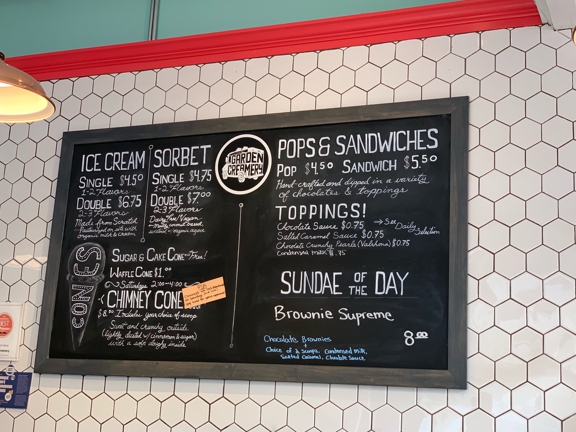 ICE CREAM
SINGLE $4.50
1-2 Flavors
DOUBLE $6.75
2-3 Flavors
Made from Scratch
SORBET
SINGLE $4.75
1-2 Flavors
DOUBLE $7.00
2-3 Flavors
Dairy Free/Vegan
GARDEN
CREAMERY
POPS & SANDWICHES
POP $4.50 SANDWICH $5.50
Hand-crafted and dipped in a variety
of chocolates & toppings
TOPPINGS!
Chocolate Sauce $0.75 → See Daily
Salted Caramel Sauce $0.75 Selection
Chocolate Crunchy Pearls (Valrhona) $0.75
Condensed milk $.75
CONES
SUGAR & CAKE CONE Free!
WAFFLE CONE $1.00
Saturdays 2:00-4:00
CHIMNEY CONE
$8.50 Includes your choice of scoop
Sweet and crunchy outside
(lightly dusted w/ cinnamon & sugar)
with a soft doughy inside
SUNDAE OF THE DAY
Brownie Supreme
8.00
Chocolate Brownies
+
Choice of 2 Scoops, Condensed Milk,
Salted Caramel, Chocolate Sauce